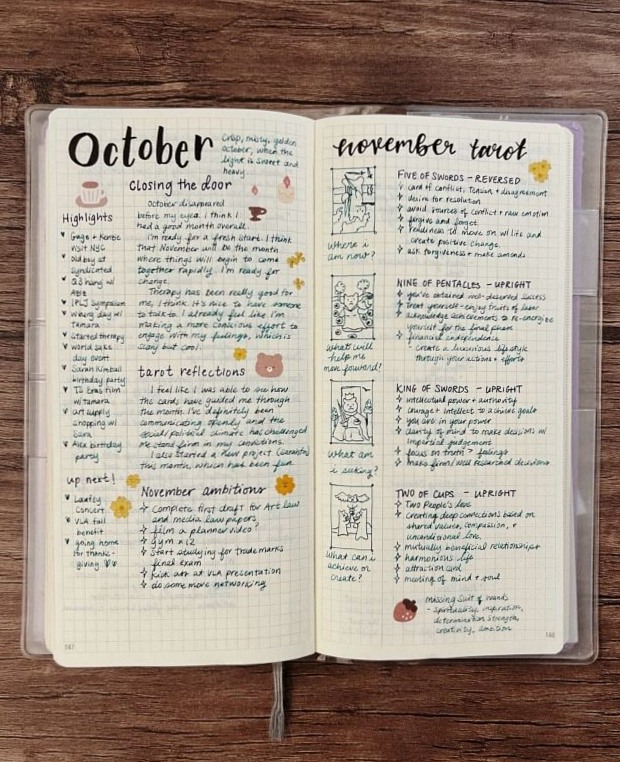 October
Crisp, misty, golden
october, when the
light is sweet and
heavy.
Closing the door
October disappeared
before my eyes. I think I
had a good month overall.
I'm ready for a fresh start. I think
that November will be the month
where things will begin to come
together rapidly. I'm ready for
change.
Therapy has been really good for
me, I think. It's nice to have someone
to talk to. I already feel like I'm
making a more conscious effort to
engage with my feelings, which is
scary but cool.
Highlights
Gage + Kenzie
visit NYC
Old boy at
syndicated
hang w/
Able
IPLJ Symposium
Wine day w/
Tamara
Started therapy
world sake
day event
Sarah Kimball
birthday party
TS Eras film
w/ tamara
art supply
shopping w/
Sara
Alex birthday
party
up next!
Laufey
Concert
VLA fall
benefit
going home
for thanks-
giving
tarot reflections
I feel like I was able to see how
the cards have guided me through
the month. I've definitely been
communicating openly and the
social/political climate has challenged
me stand firm in my convictions.
I also started a new project
this month, which has been fun.
November ambitions
Complete first draft for Art law
and media law papers
film a planner video?
Gym x12
Start studying for trademarks
final exam
Kick ass at VLA presentation
do some more networking
147
november tarot
Where i
am now?
FIVE OF SWORDS - REVERSED
card of conflict, tension + disagreement
desire for resolution
avoid sources of conflict + raw emotion
forgive and forget
readiness to move on w/ life and
create positive change.
ask forgiveness + make amends
what will
help me
move forward?
NINE OF PENTACLES - UPRIGHT
you've obtained well-deserved success
Treat yourself - enjoy fruits of labor
acknowledge achievements to re-energize
yourself for the final phase
financial independence
- create a luxurious lifestyle
through your actions + efforts
What am
i
KING OF SWORDS - UPRIGHT
intellectual power + authority
courage + intellect to achieve goals
you are in your power
clarity of mind to make decisions w/
impartial judgement
focus on truth > feelings
make firm/well researched decisions
What can i
achieve or
create?
TWO OF CUPS - UPRIGHT
Two People's love
Creating deep connections based on
shared values, compassion, +
unconditional love.
mutually beneficial relationships
harmonious life
attraction and
meeting of mind + soul
missing suit of wands
- spirituality, inspiration,
determination strength,
creativity, ambition
148